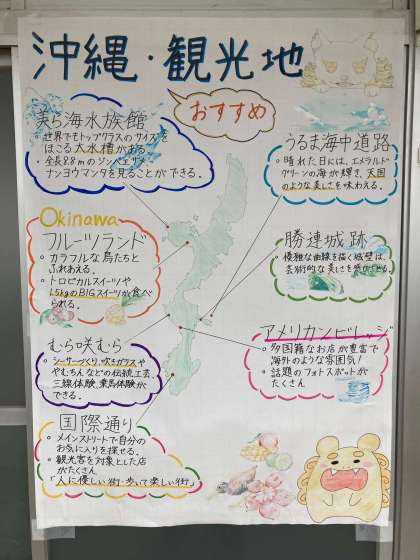 沖縄・観光地
おすすめ
美ら海水族館
世界でもトップクラスのサイズを
ほこる大水槽がある。
・全長8.8mのジンベエザメ・
ナンヨウマンタを見ることができる。
Okinawa
フルーツランド
・カラフルな鳥たちと
ふれあえる。
・トロピカルスイーツや
1.5kgのBIGスイーツが食べ
られる。
むら咲むら
・シーサーづくり、吹きガラスや
やちむんなどの伝統工芸、
三線体験、乗馬体験が
できる。
国際通り
・メインストリートで自分の
お気に入りを探せる。
・観光客を対象とした店
がたくさん
「人に優しい街・歩いて楽しい街」
うるま海中道路
・晴れた日には、エメラルド
グリーンの海が輝き、天国
のような美しさを味わえる。
勝連城跡
・優雅な曲線を描く城壁は、
芸術的な美しさを感じさせる。
アメリカンビレッジ
・多国籍なお店が豊富で
海外のような雰囲気!
・話題のフォトスポットが
たくさん